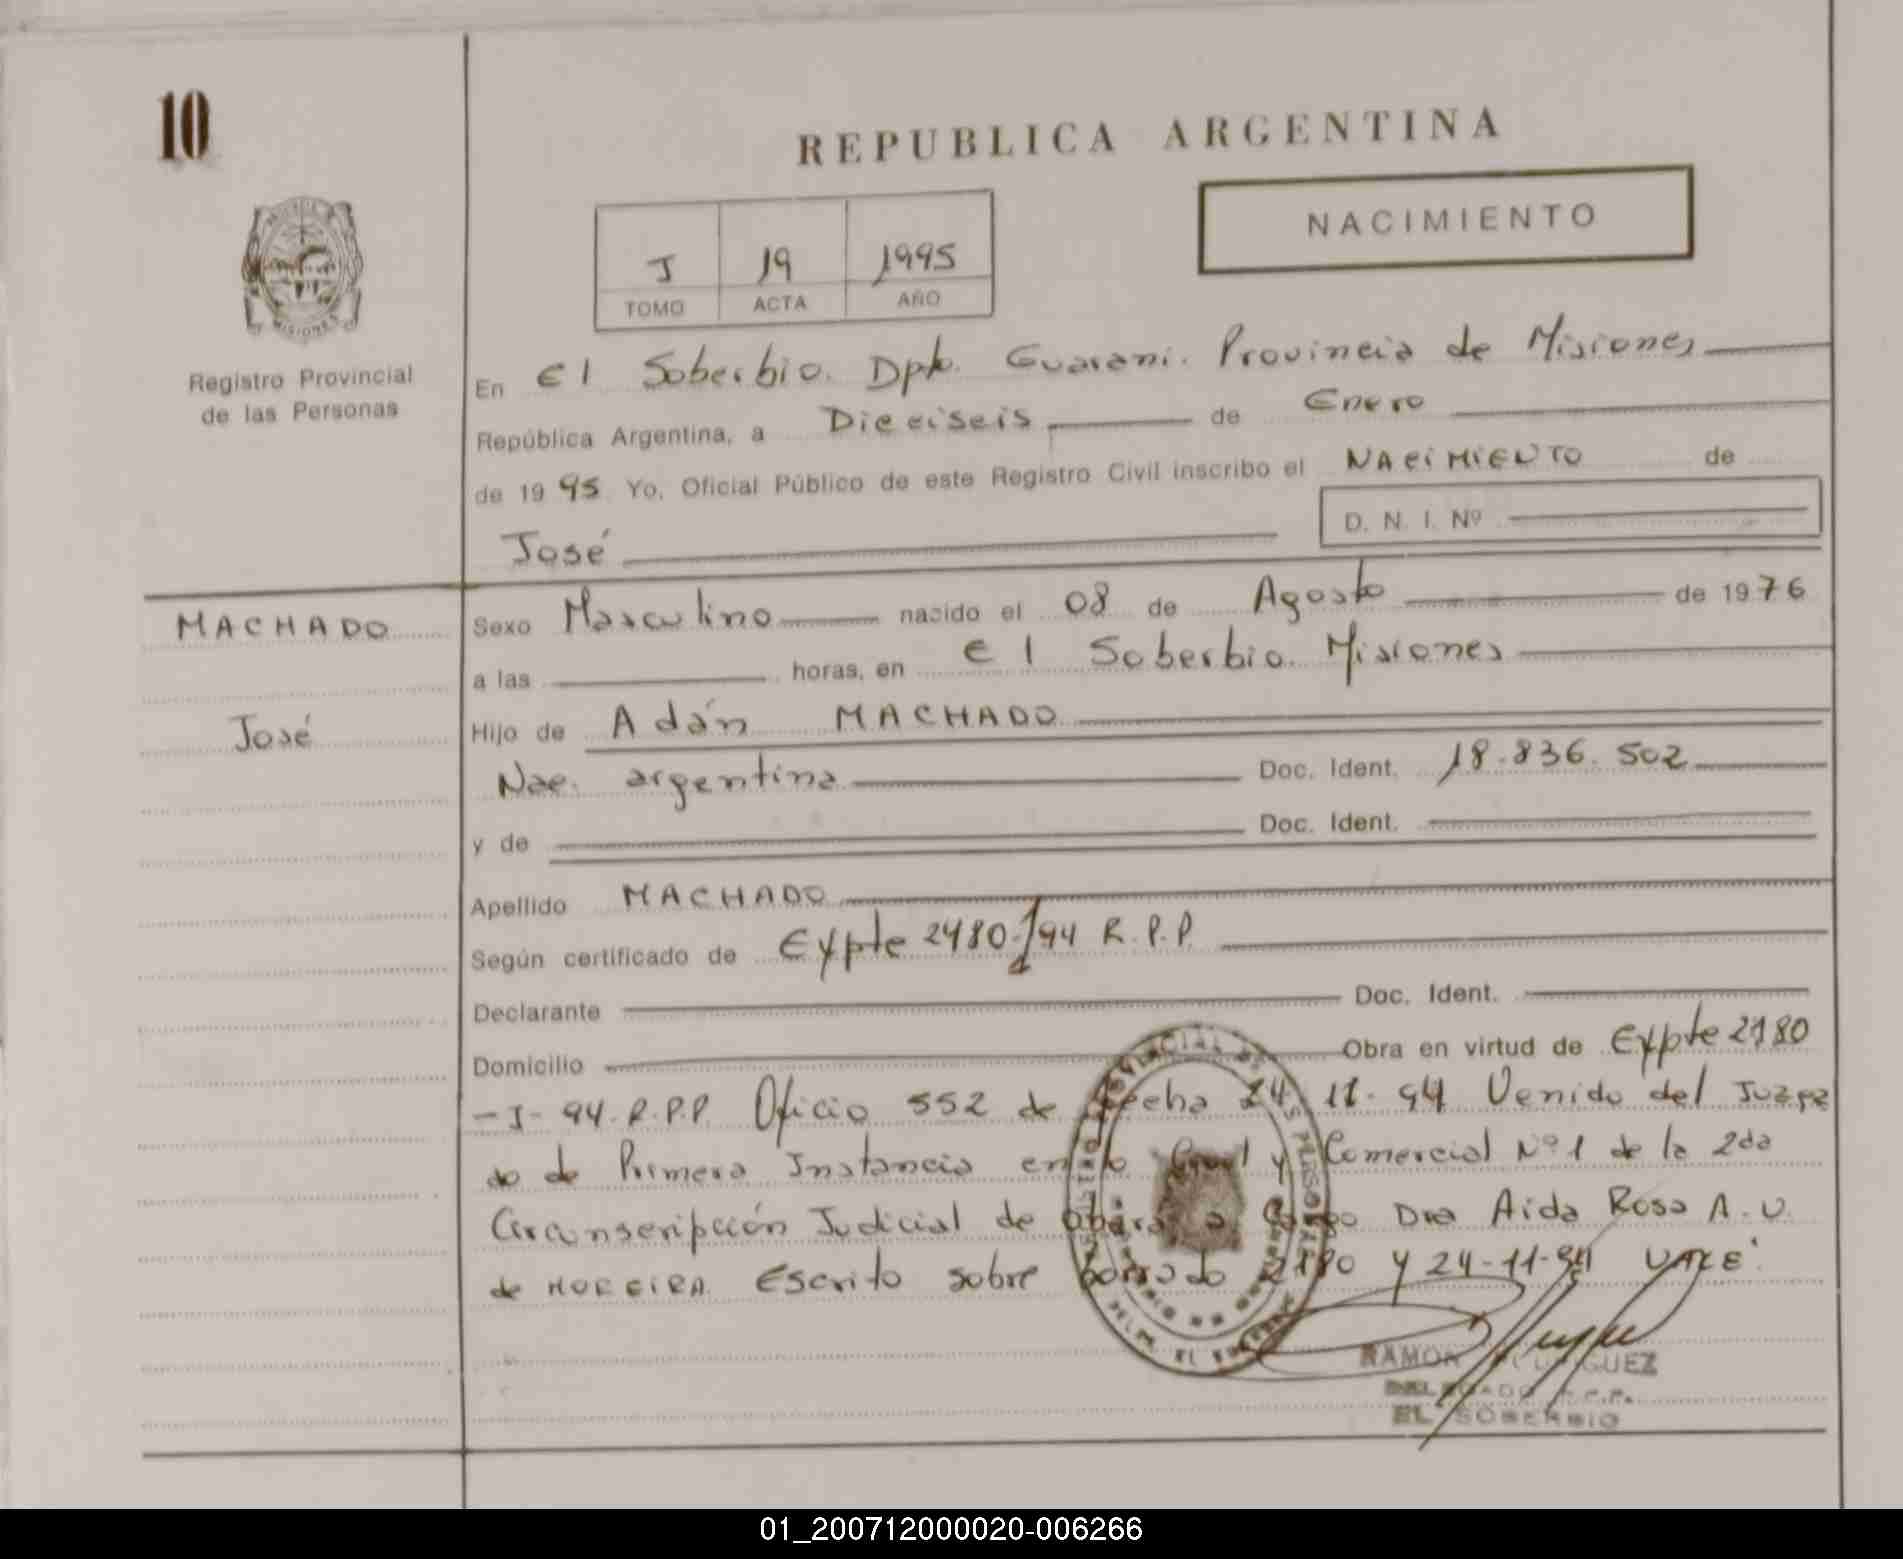 10
REPUBLICA ARGENTINA
NACIMIENTO
I 19 1995
TOMO ACTA AÑO
MISIONES
Registro Provincial
de las Personas
En El Soberbio. Dpto. Guarani. Provincia de Misiones
República Argentina, a Dieciseis de Enero
de 1995 Yo, Oficial Público de este Registro Civil inscribo el NACIMIENTO de
D. N. I. Nº
José
MACHADO
José
Sexo Masculino nacido el 08 de Agosto de 1976
a las horas, en El Soberbio. Misiones
Hijo de Adán MACHADO
Nac. argentina Doc. Ident. 18.836.502
y de Doc. Ident.
Apellido MACHADO
Según certificado de Expte 2480-I-94 R.P.P.
Declarante Doc. Ident.
Domicilio Obra en virtud de Expte 2180
-I-94-R.P.P. Oficio 552 de fecha 24 11-94 Venido del Juzga
do de Primera Instancia en lo Civil y Comercial Nº1 de la 2da
Circunscripción Judicial de Oberá a Cargo Dra Aida Rosa A.U.
de MOREIRA. Escrito sobre borrado 2180 y 24-11-94 VALE
RAMON RODRIGUEZ
DELEGADO R.P.P.
EL SOBERBIO
01_200712000020-006266